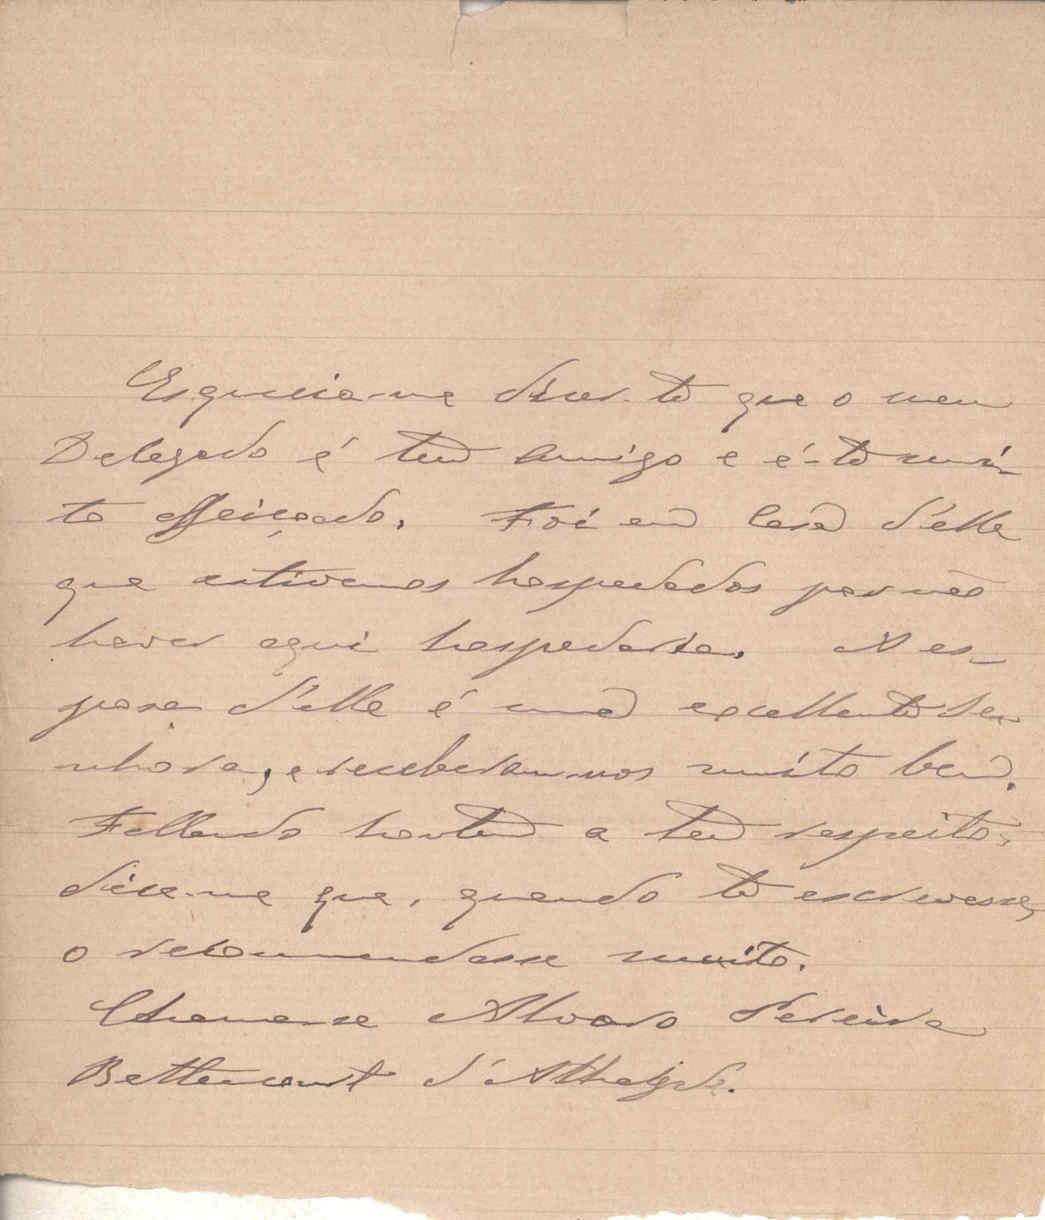 Esquecia-me dizer-te que o meu
Delegado é teu amigo e é-te mui-
to affeiçoado. Foi em casa d'elle
que estivemos hospedados por não
haver aqui hospedaria. A es-
posa d'elle é uma excellente Se-
nhora, e receberam-nos muito bem.
Fallando hontem a teu respeito,
disse-me que, quando te escrevesse,
o recommendasse muito.
Chama-se Alvaro Pereira
Bettencourt d'Athayde.